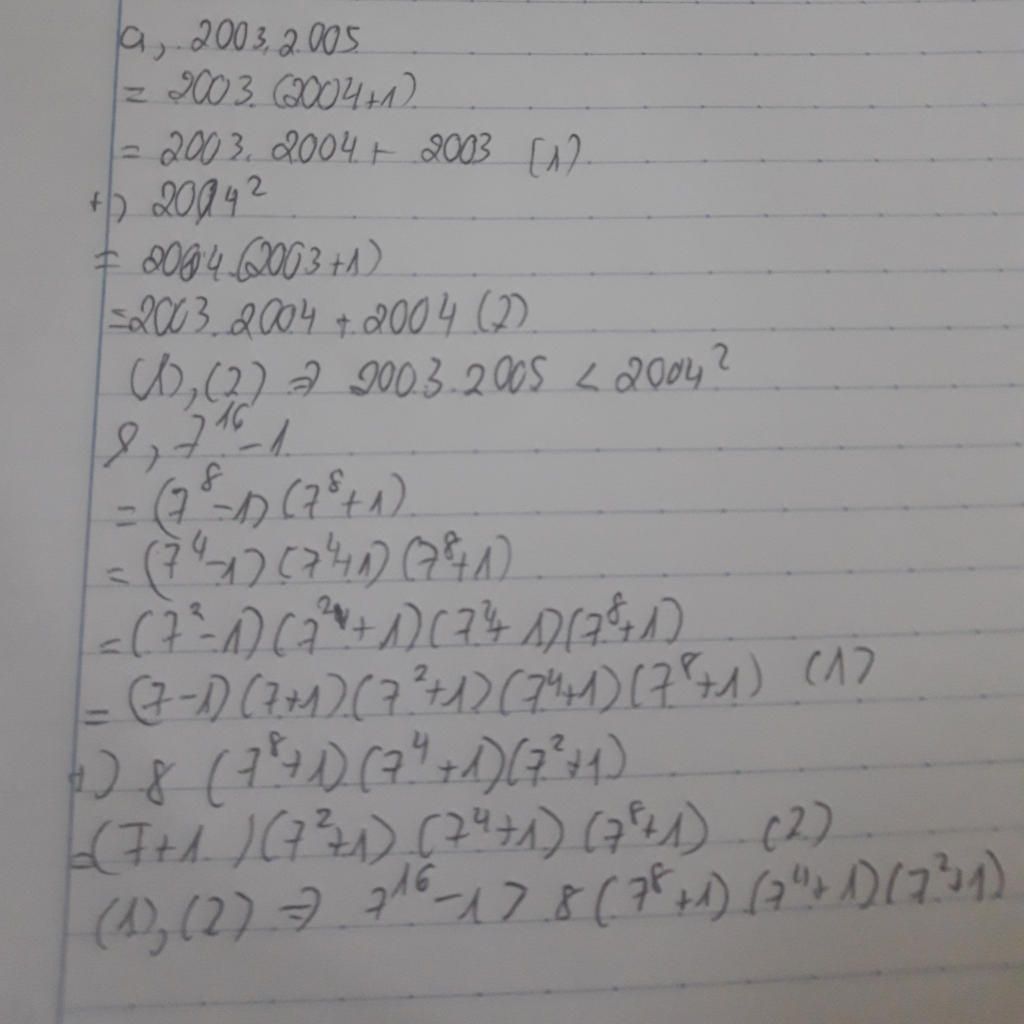 a, 2003.2005
= 2003.(2004+1)
= 2003. 2004 + 2003 (1)
+) 2004²
= 2004.(2003+1)
=2003.2004 + 2004 (2)
(1),(2) ⇒ 2003.2005 < 2004²
8, 7¹⁶-1
= (7⁸-1)(7⁸+1)
= (7⁴-1)(7⁴+1)(7⁸+1)
=(7²-1)(7²+1)(7⁴+1)(7⁸+1)
= (7-1)(7+1)(7²+1)(7⁴+1)(7⁸+1) (1)
+) 8 (7⁸+1)(7⁴+1)(7²+1)
=(7+1)(7²+1)(7⁴+1)(7⁸+1) (2)
(1),(2) ⇒ 7¹⁶-1 > 8(7⁸+1)(7⁴+1)(7²+1)